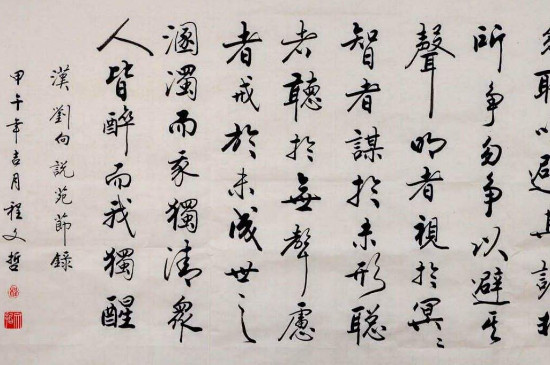 取以避其
所爭勿爭以避其
聲明者視於冥〻
智者謀於未形聰
者聽於無聲慮
者戒於未成世之
溷濁而我獨清眾
人皆醉而我獨醒
漢劉向說苑節錄
甲午年吉月程文哲